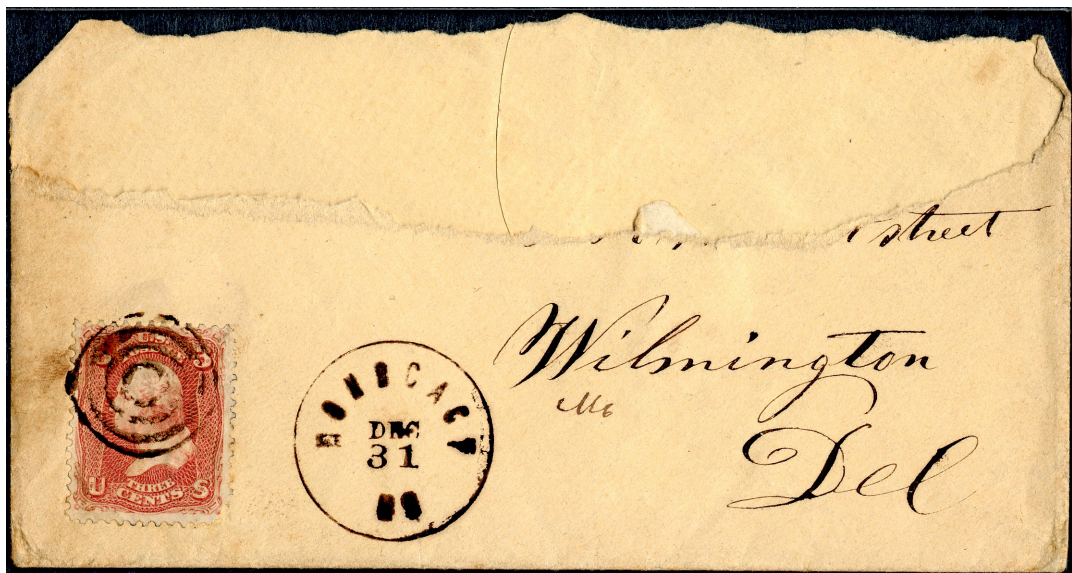 street
Wilmington
Del
MONOCACY
DEC
31
THREE
U CENTS S